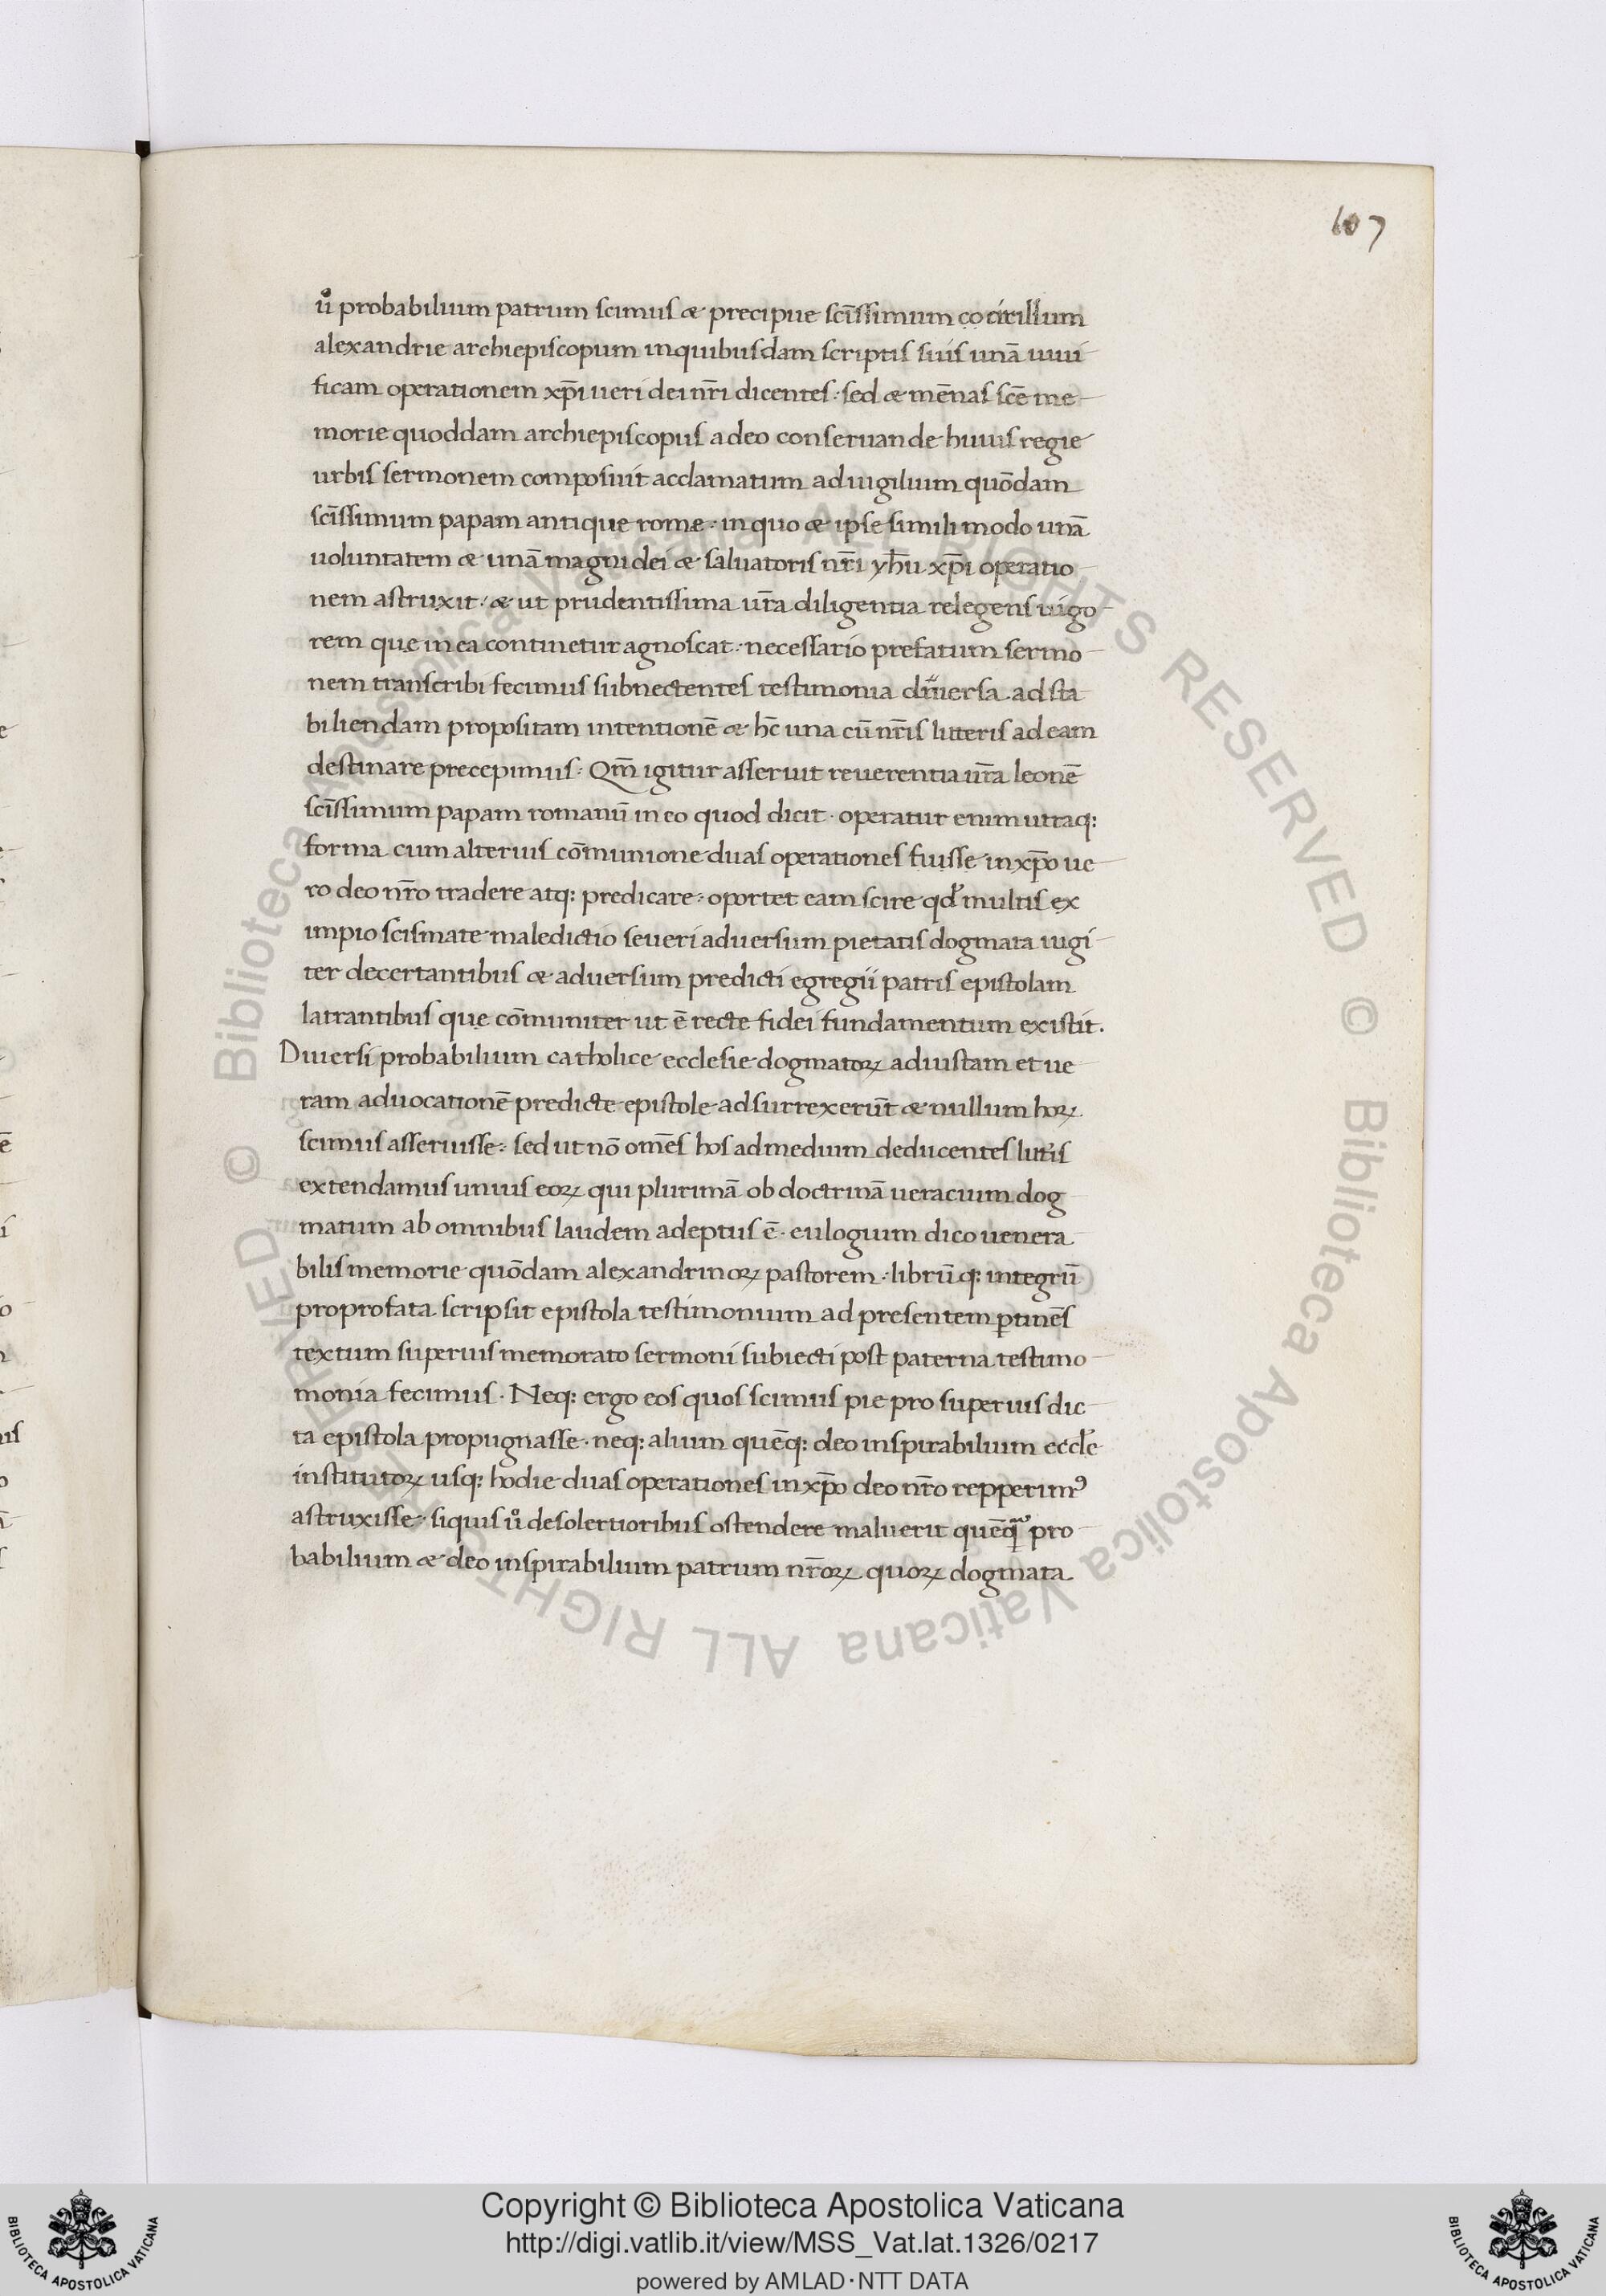 107
uͦ probabilium patrum scimus & precipue scīssimum cocirillum
alexandrie archiepiscopum inquibusdam scriptis suis unā uiui
ficam operationem xp̄i ueri dei nr̄i dicentes · sed & mēnas scē me
morie quoddam archiepiscopus adeo conseruande huius regie
urbis sermonem composuit acclamatum aduigilium quōdam
scīssimum papam antique rome · inquo & ipse simili modo unā
uoluntatem & unā magni dei & saluatoris nr̄i yhū xp̄i operatio
nem astruxit · & ut prudentissima ur̄a diligentia relegens uigo
rem que inea continetur agnoscat · necessario prefatum sermo
nem transcribi fecimus subnectentes testimonia diuersa adsta
biliendam propositam intentionē & hc̄ una cū nr̄is litteris ad eam
destinare precepimus · Qm̄ igitur asseruit reuerentia ur̄a leonē
scīssimum papam romanū in eo quod dicit · operatur enim utraq:
forma cum alterius cōmunione duas operationes fuisse inxp̄o ue
ro deo nr̄o tradere atq: predicare · oportet eam scire qd̛ multis ex
impio scismate maledictio seueri aduersum pietatis dogmata iugi
ter decertantibus & aduersum predicti egregii patris epistolam
latrantibus que cōmuniter ut ē recte fidei fundamentum existit.
Diuersi probabilium catholice ecclesie dogmatoꝝ adiustam et ue
ram aduocationē predicte epistole adsurrexerūt & nullum hoꝝ
scimus asseruisse · sed ut nō omēs hos admedium deducentes litt̛is
extendamus unius eoꝝ qui plurimā ob doctrinā ueracium dog
matum ab omnibus laudem adeptus ē · eulogium dico uenera
bilis memorie quōdam alexandrinoꝝ pastorem · librūq: integrū
proprofata scripsit epistola testimonium ad presentem ꝑtinēs
textum superius memorato sermoni subiecti post paterna testimo
monia fecimus · Neq: ergo eos quos scimus pie pro superius dic
ta epistola propugnasse · neq: alium quēq: deo inspirabilium eccl̛e
institutoꝝ usq: hodie duas operationes inxp̄o deo nr̄o repperimꝰ
astruxisse · siquis uͦ desolertioribus ostendere maluerit quēqᷓ pro
babilium & deo inspirabilium patrum nr̄oꝝ quoꝝ dogmata
© Biblioteca Apostolica Vaticana ALL RIGHTS RESERVED © Biblioteca Apostolica Vaticana ALL RIGHTS RESERVED
BIBLIOTECA APOSTOLICA VATICANA
Copyright © Biblioteca Apostolica Vaticana
http://digi.vatlib.it/view/MSS_Vat.lat.1326/0217
powered by AMLAD·NTT DATA
BIBLIOTECA APOSTOLICA VATICANA